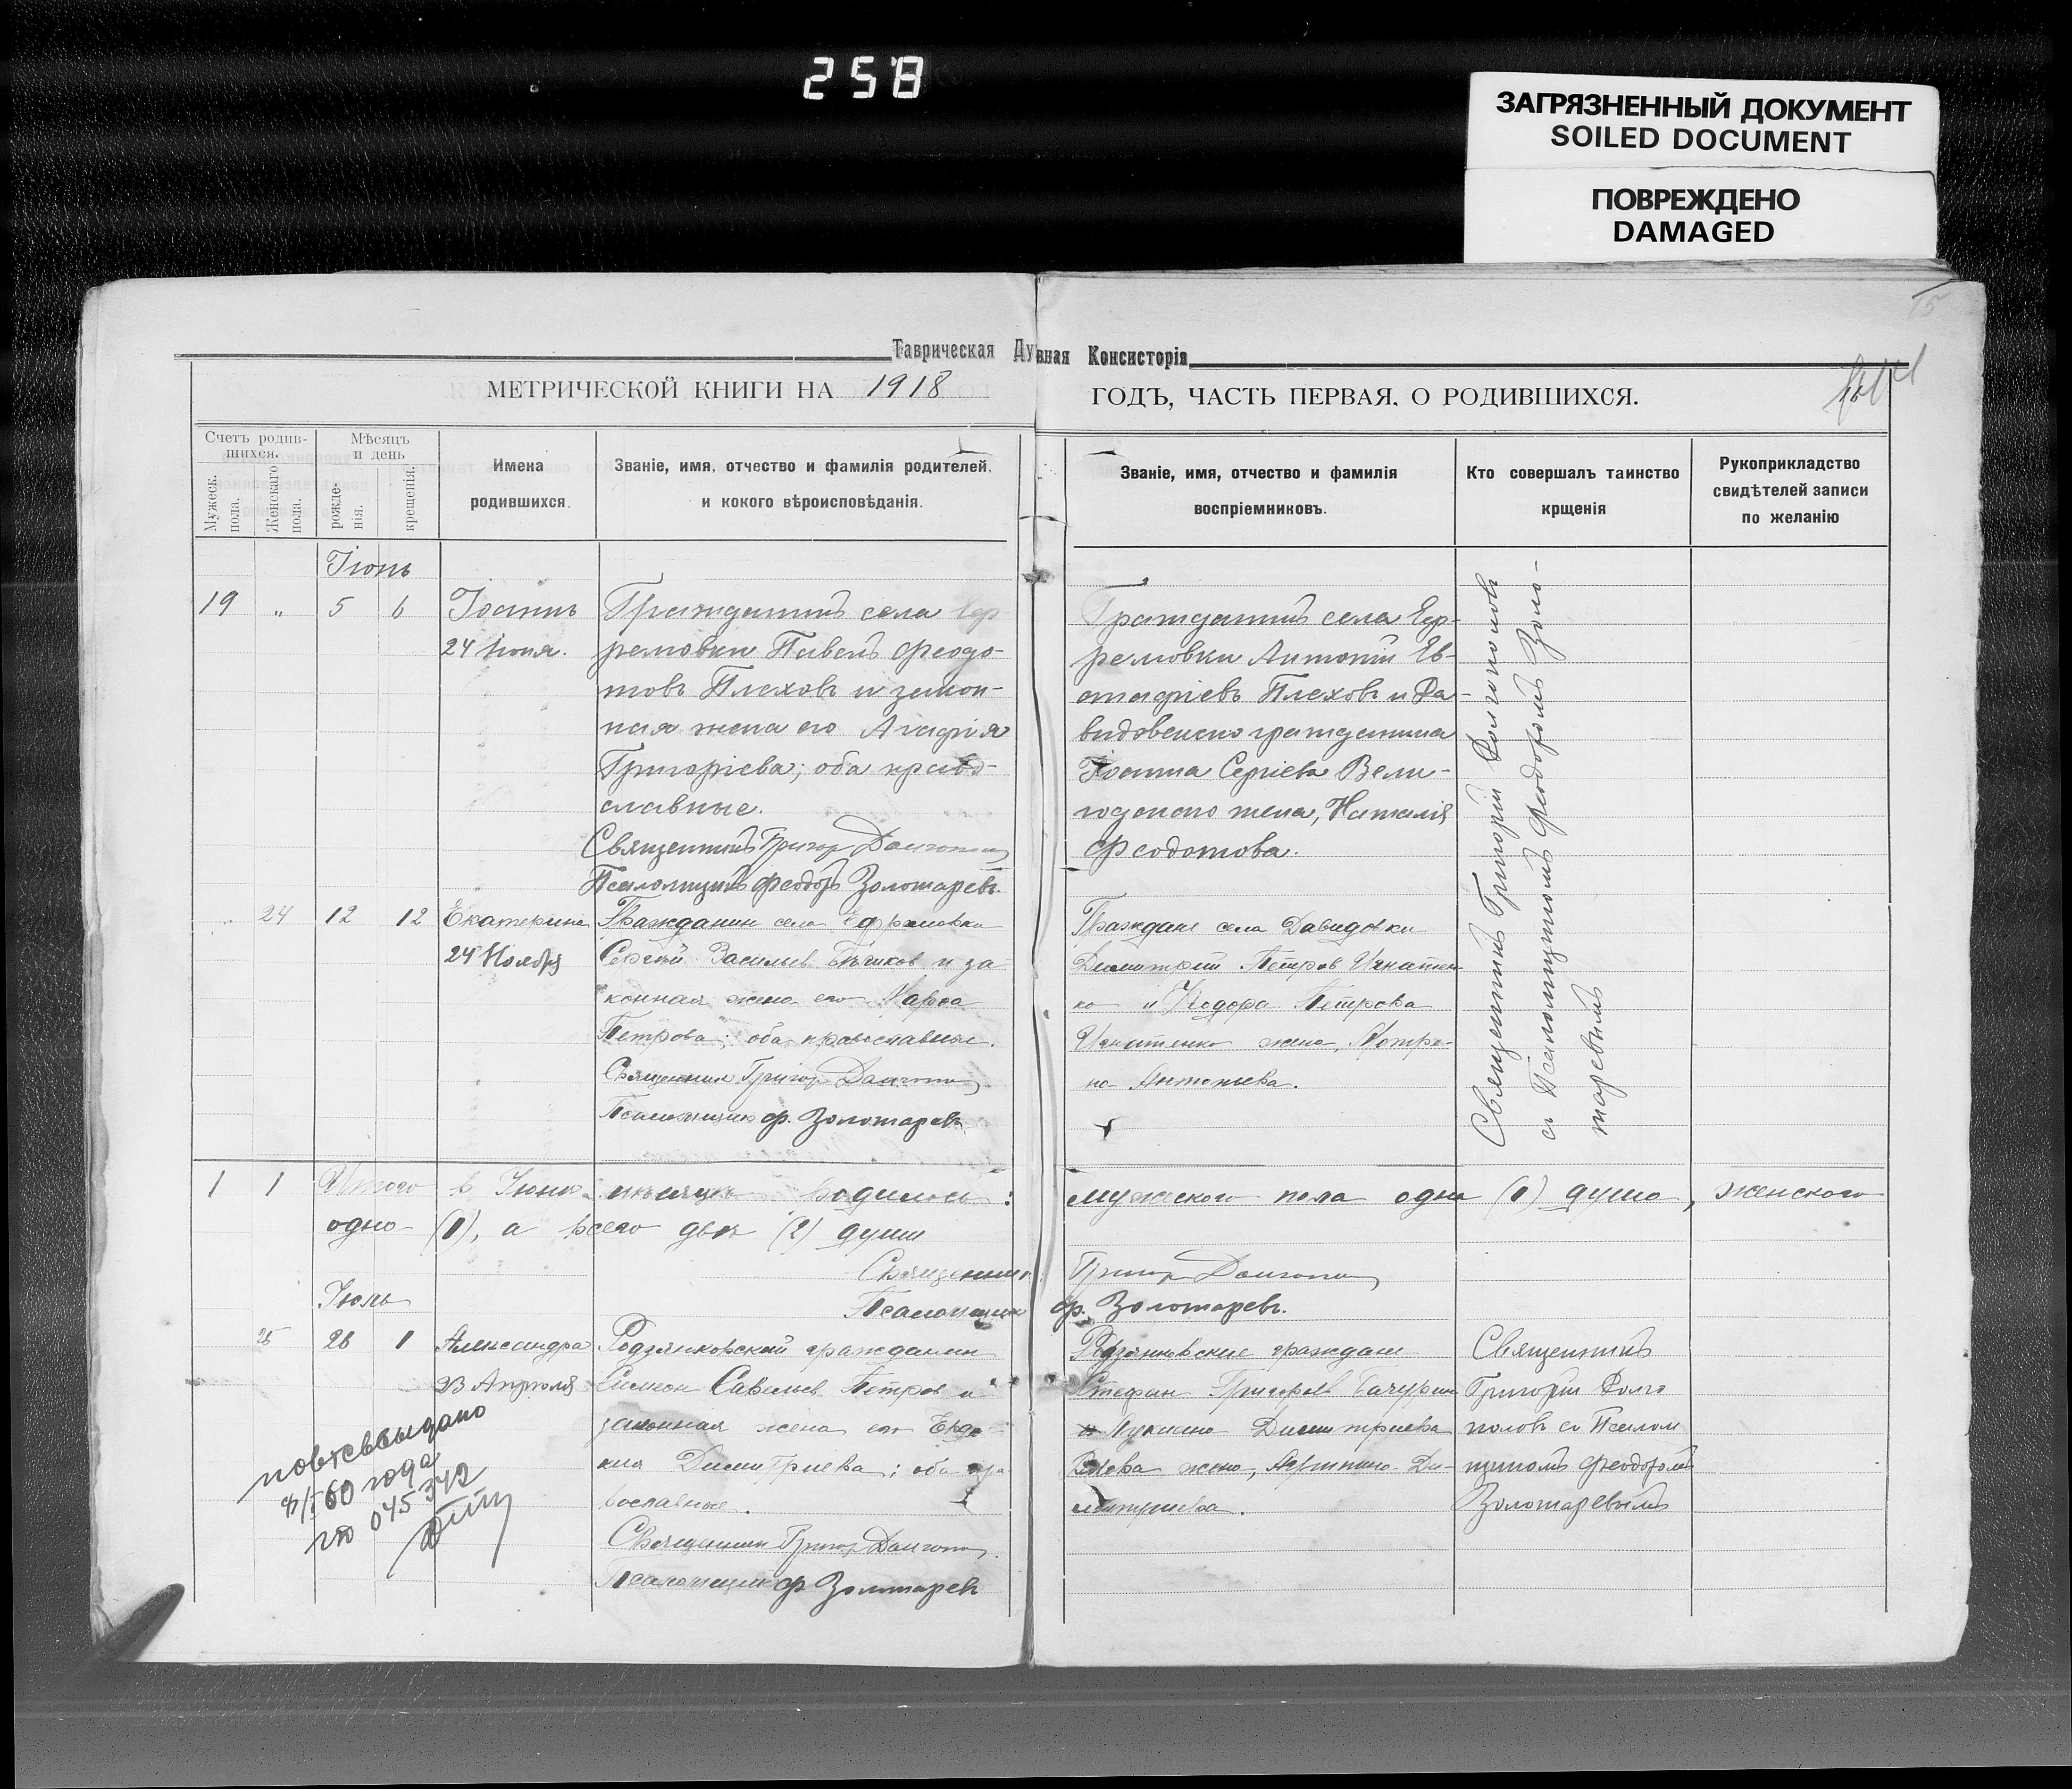 258
ЗАГРЯЗНЕННЫЙ ДОКУМЕНТ
SOILED DOCUMENT
ПОВРЕЖДЕНО
DAMAGED
15
Таврическая Духвная Консисторія
МЕТРИЧЕСКОЙ КНИГИ НА 1918
ГОДЪ, ЧАСТЬ ПЕРВАЯ, О РОДИВШИХСЯ.
Счетъ родив-
шихся.
Мужеск.
пола.
Женскаго
пола.
Мѣсяцъ
и день
рожде-
нія.
крещенія.
Имена
родившихся.
Званіе, имя, отчество и фамилія родителей,
и кокого вѣроисповѣданія.
Званіе, имя, отчество и фамилія
воспріемниковъ.
Кто совершалъ таинство
крщенія
Рукоприкладство
свидѣтелей записи
по желанію
Іюнь
19 „ 5 6
Іоаннъ
24 Іюня.
Гражданинъ села Еф-
ремовки Павелъ Феодо-
товъ Плеховъ и закон-
ная жена его Агафія
Григоріева; оба право-
славные.
Священникъ Григор Долгопол
Псаломщикъ Феодоръ Золотаревъ
Гражданинъ села Еф-
ремовки Антоній Ев-
стафіевъ Плеховъ и Да-
видовскаго гражданина
Іоанна Сергіева Вели-
годскаго жена, Наталія
Феодотова.
Священникъ Григорій Долгополовъ
съ Псаломщикомъ Феодоромъ Золо-
таревымъ
24 12 12
Екатерина
24 Ноября
Гражданин села Ефремовки
Сергий Васильев Бычиков и за
конная жена его Марфа
Петрова; оба православные.
Священник Григор Долгопол
Псаломщик Ф. Золотаревъ
Граждане села Давидовки
Димитрий Петров Игнатен
ко и Феодора Петрова
Игнатенко жена, Матро-
на Антоньева.
1 1 Итого в Июне месяце родилось: мужского пола одна (1) душа, женского
одна (1), а всего две (2) души
Священник Григор Долгопол
Псаломщик Ф. Золотаревъ.
Июль
25 26 1
Александра
23 Апреля
Родзянковский гражданин
Симеон Савельев Петров и
законная жена его Евдо
кия Димитриева; оба пра
вославные.
Священник Григор Долгопол
Псаломщик Ф Золотарев
Родзянковские граждане
Стефан Григорьев Бачурин
и Лукиана Димитриева
жена, Агрипина Ди-
митриева.
Священникъ
Григорій Долго
половъ съ Псалом
щикомъ Феодоромъ
Золотаревымъ
повт свв выдано
60 года
045342